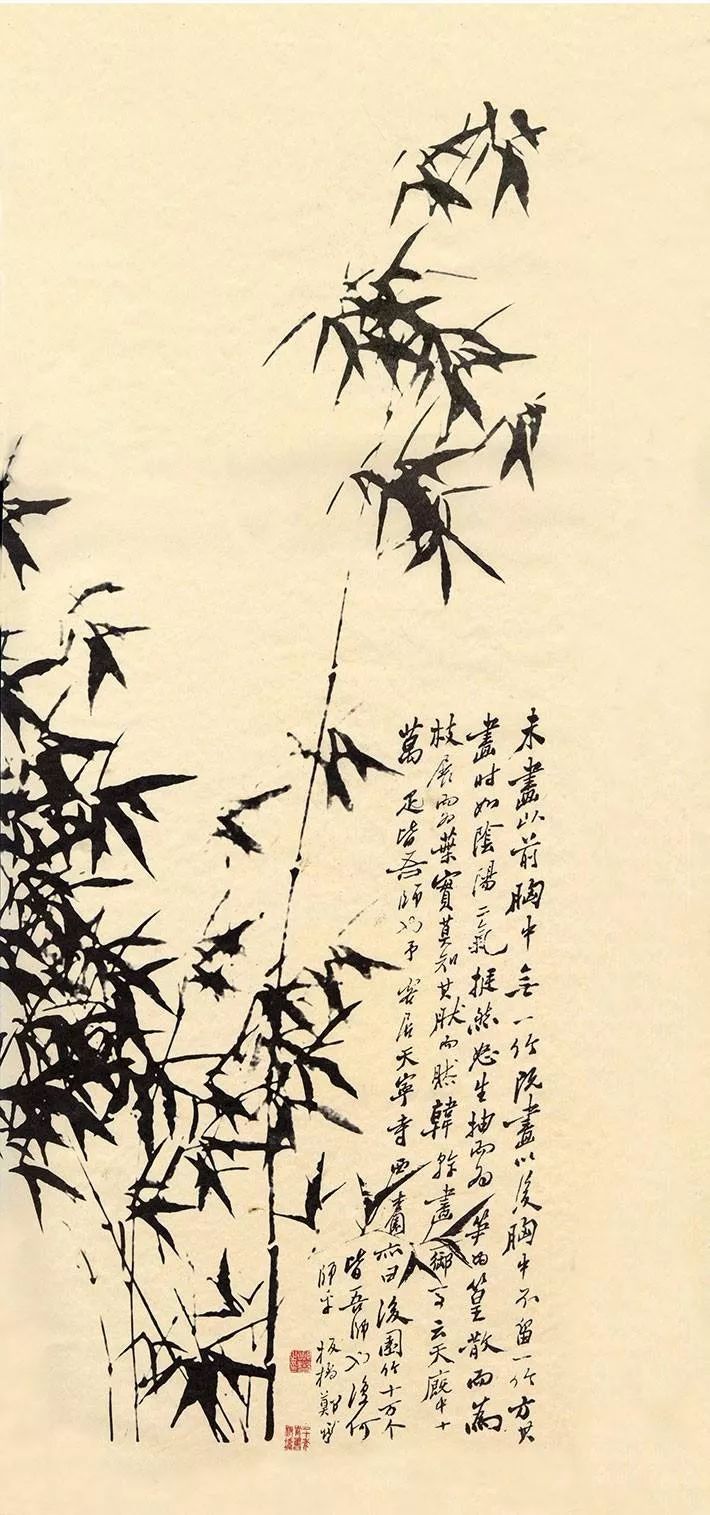 未畫以前胸中無一竹既畫以後胸中不留一竹方其
畫時如陰陽二氣挺然怒生抽而為筍為篁散而為
枝展而為葉實莫知其然而然韓幹畫御馬云天廄中十
萬匹皆吾師也予客居天寧寺西杏園亦曰後園竹十万个
皆吾師也復何
師乎 板橋鄭燮